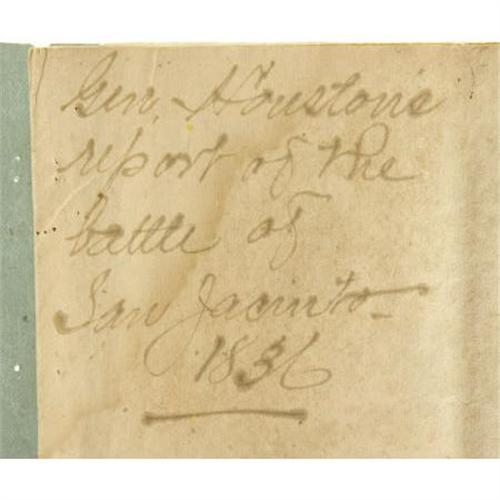 Gen. Houston's
report of the
battle of
San Jacinto—
1836